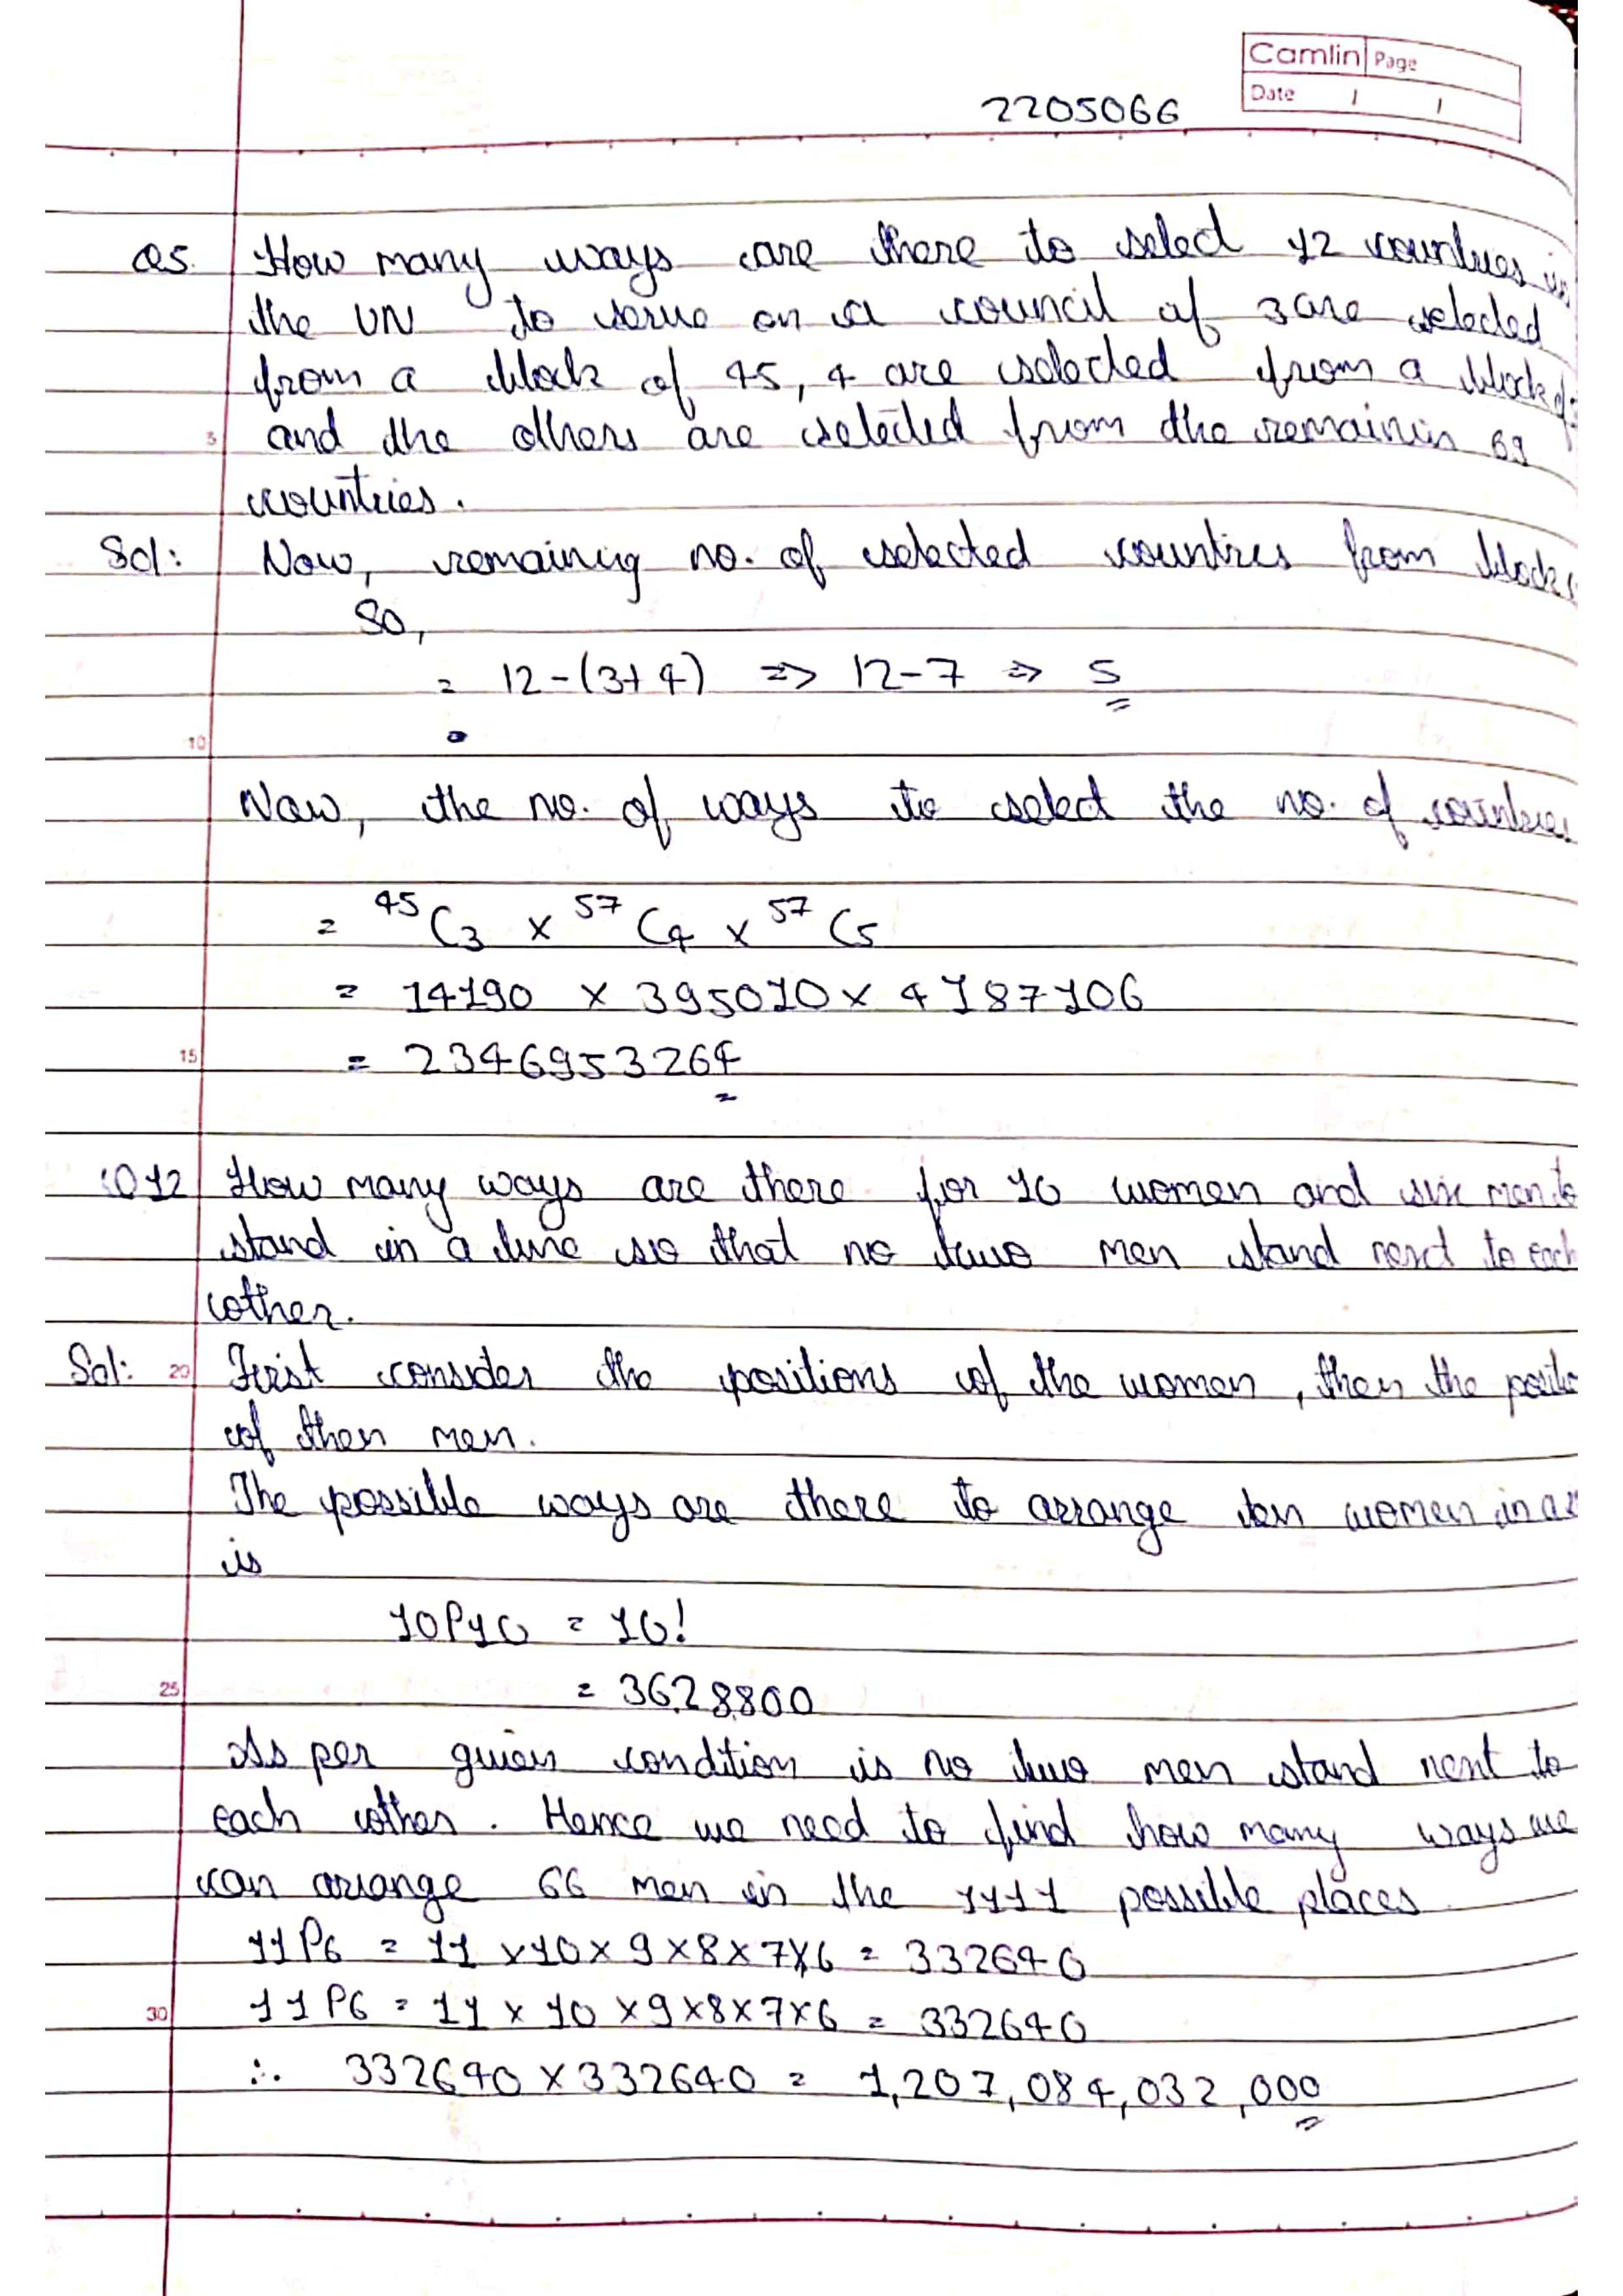 Camlin Page
Date / /
2205066
Q5. How many ways are there to select 12 countries in
the UN to serve on a council of 3 are selected
from a block of 45, 4 are selected from a block of
and the others are selected from the remainin 69
countries.
Sol: Now, remaining no. of selected countires from block
So,
= 12-(3+4) => 12-7 => 5
Now, the no. of ways to select the no. of countries
= 45C3 x 57C4 x 57C5
= 14190 x 395010 x 4187106
= 2346953264
Q12 How many ways are there for 10 women and six men to
stand in a line so that no two men stand next to each
other.
Sol: First consider the positions of the women, then the
of then men.
The possible ways are there to arrange ten women in a
is
10P10 = 10!
= 3628800
As per given condition is no two men stand next to
each other. Hence we need to find how many ways we
can arrange 66 men in the 1111 possible places
11P6 = 11 x10x 9x8x7x6 = 332640
11P6 = 11 x 10 x9x8x7x6 = 332640
∴ 332640 x 332640 = 1,207,084,032,000
5
10
15
20
25
30